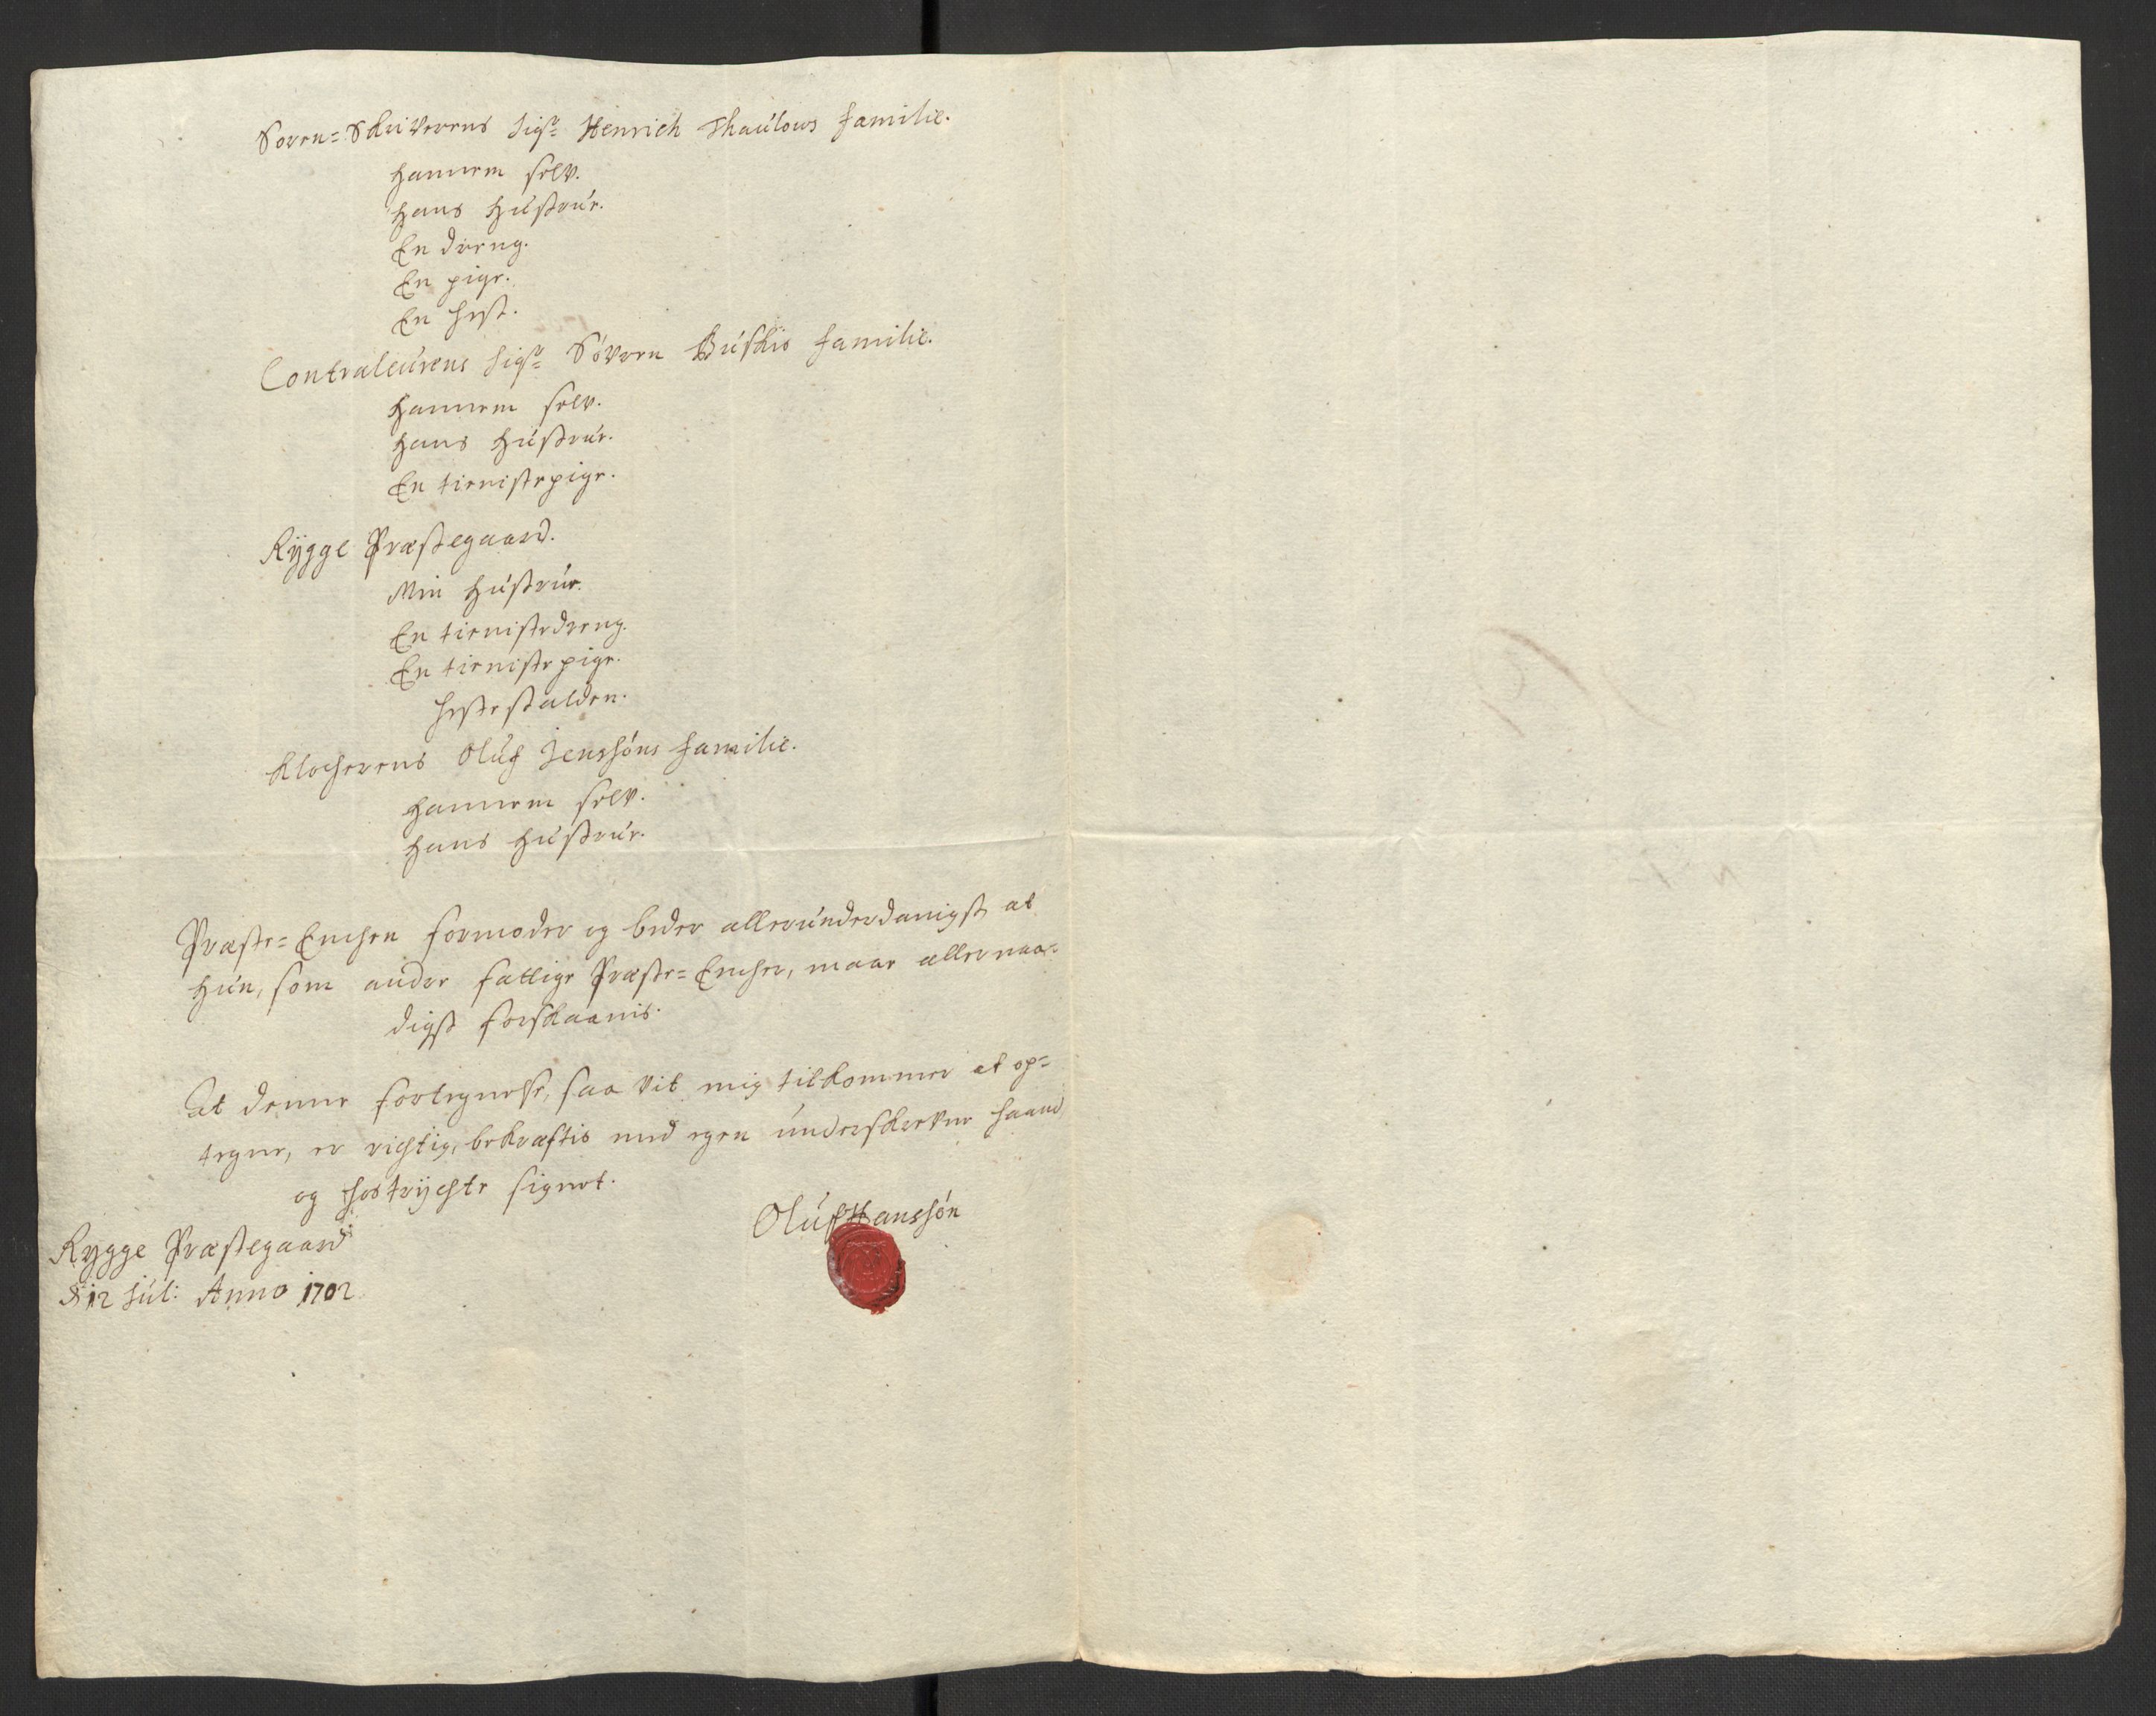 Soren-Skriverens Sigr Henrich Thaulows familie.
Hannem selv.
Hans Hustrue.
En dreng.
En pige.
En hest.
Contraleurens Sigr Søvren Buskis familie.
Hannem selv.
Hans Hustrue.
En tienistepige.
Rygge Præstegaard.
Min Hustrue.
En tienistedreng.
En tienistepige.
hestestalden.
Klocherens Oluf Jenssøns familie.
Hannem selv.
Hans Hustrue.
Præste-Enchen formoder og beder allerunderdanigst at
hun, som andre fattige Præste-Encher, maae allernaa-
digst forskaanis.
At denne fortegnelse, saa vit mig tilkommer at op-
tegne, er richtig, bekræftis med egen underskrevne haand
og hostrychte signet.
Oluf Hanssøn
Rygge Præstegaard
d: 12 Jul: Anno 1702